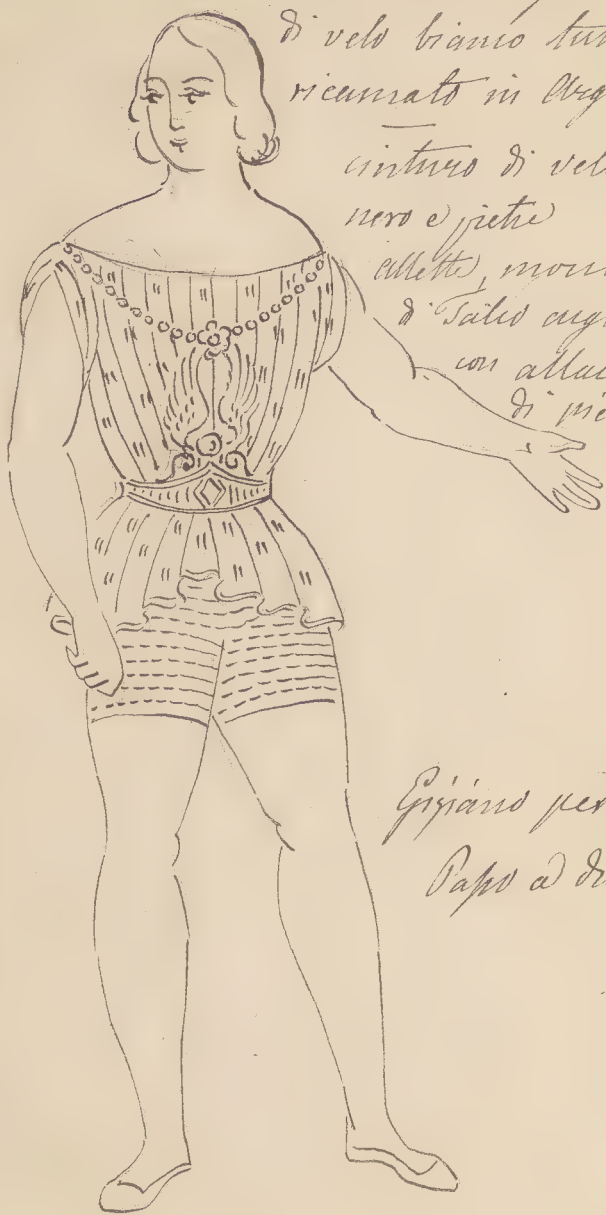 di velo bianco tut
ricamato in Arg
cinturo di vel
nero e pietre
allette, mon
di Talco arg
con allac
di pie
per
Passo a di